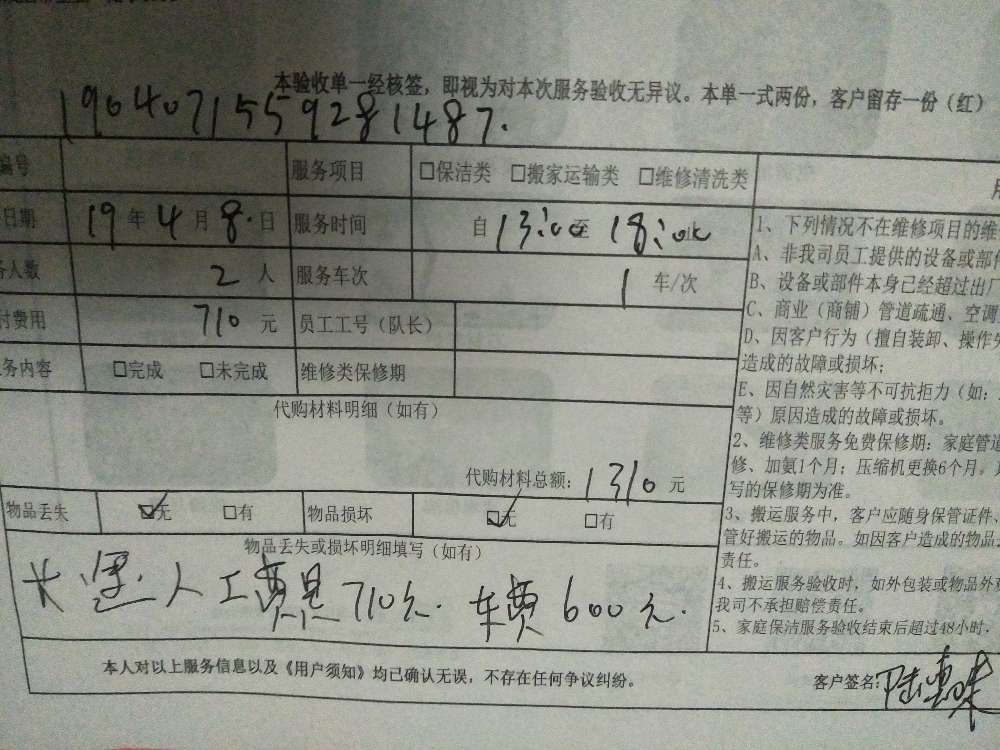 本验收单一经核签，即视为对本次服务验收无异议。本单一式两份，客户留存一份（红）
1904071559281487.
编号 服务项目 □保洁类 □搬家运输类 □维修清洗类
日期 19年4月8.日 服务时间 自13:00至18:00止
务人数 2人 服务车次 1车/次
付费用 710元 员工工号（队长）
务内容 □完成 □未完成 维修类保修期
代购材料明细（如有）
代购材料总额：1310元
物品丢失 ☑无 □有 物品损坏 ☑无 □有
物品丢失或损坏明细填写（如有）
长途人工费是710元. 车费600元.
本人对以上服务信息以及《用户须知》均已确认无误，不存在任何争议纠纷。
客户签名：陆惠
1、下列情况不在维修项目的维
A、非我司员工提供的设备或部件
B、设备或部件本身已经超过出厂
C、商业（商铺）管道疏通、空调
D、因客户行为（擅自装卸、操作失
造成的故障或损坏；
E、因自然灾害等不可抗拒力（如：
等）原因造成的故障或损坏。
2、维修类服务免费保修期：家庭管道
修、加氨1个月；压缩机更换6个月，
写的保修期为准。
3、搬运服务中，客户应随身保管证件、
管好搬运的物品。如因客户造成的物品
责任。
4、搬运服务验收时，如外包装或物品外观
我司不承担赔偿责任。
5、家庭保洁服务验收结束后超过48小时，